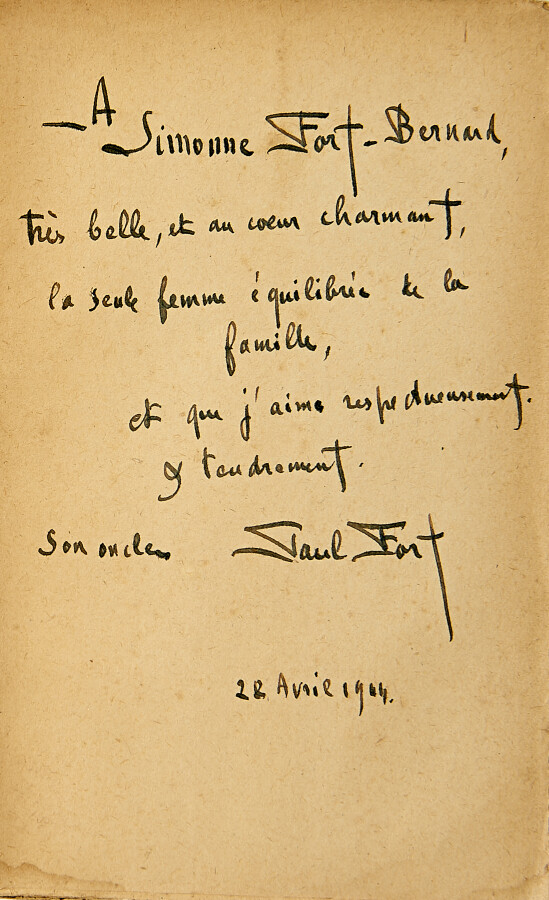 — A
Simonne Fort-Bernard,
très belle, et au coeur charmant,
la seule femme équilibrée de la
famille,
et que j'aime respectueusement.
& tendrement.
Son oncle Paul Fort
28 Avril 1944.